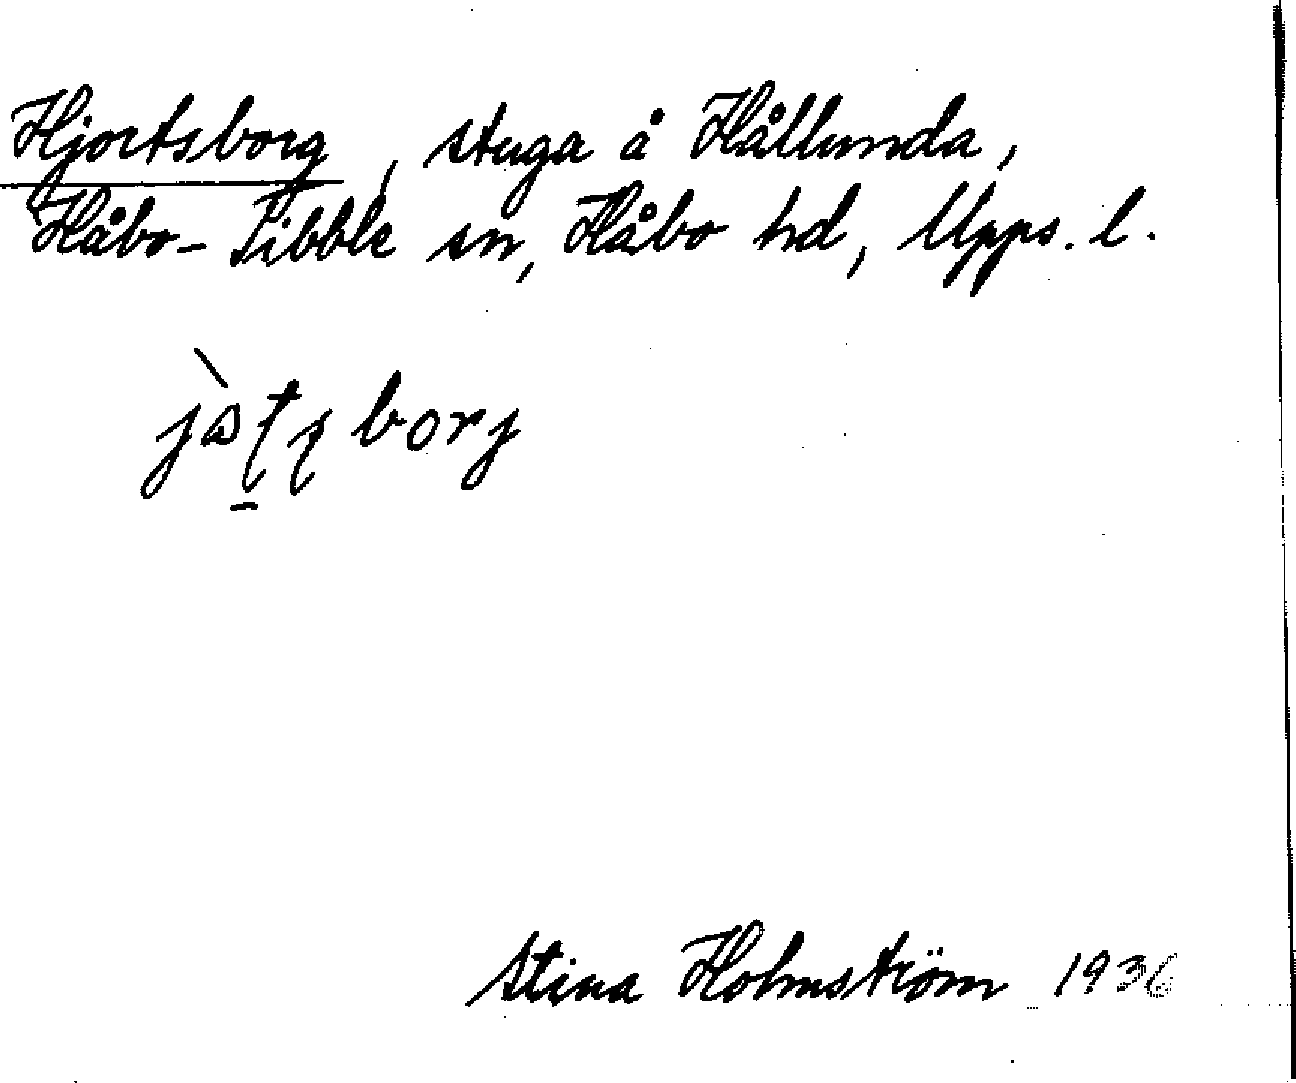 Hjortsborg, stuga å Hållunda,
Håbo-Tibble sn, Håbo hd, Upps. l.
Stina Holmström 1936